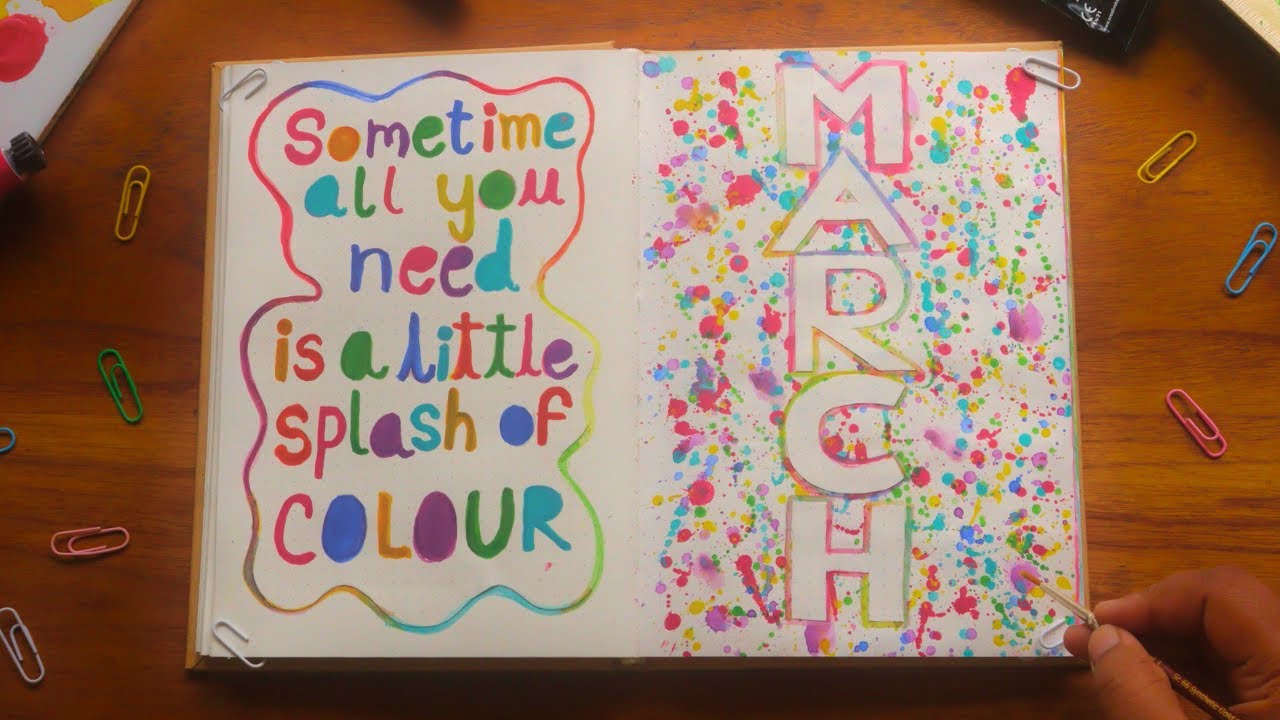 Sometime
all you
need
is a little
splash of
COLOUR
MARCH